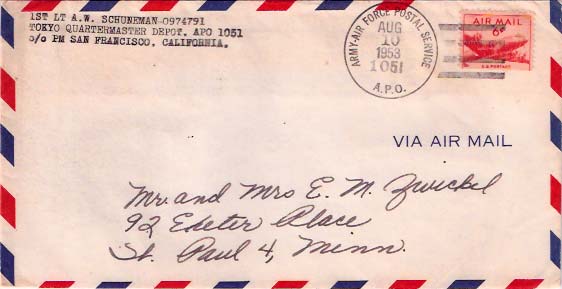 1ST LT A.W. SCHUNEMAN-0974791
TOKYO QUARTERMASTER DEPOT. APO 1051
c/o PM SAN FRANCISCO, CALIFORNIA.
ARMY-AIR FORCE POSTAL SERVICE
AUG
10
1953
1051
A.P.O.
AIR MAIL
6¢
U.S. POSTAGE
VIA AIR MAIL
Mr. and Mrs E. M. Zwickel
92 Exeter Place
St. Paul 4, Minn.